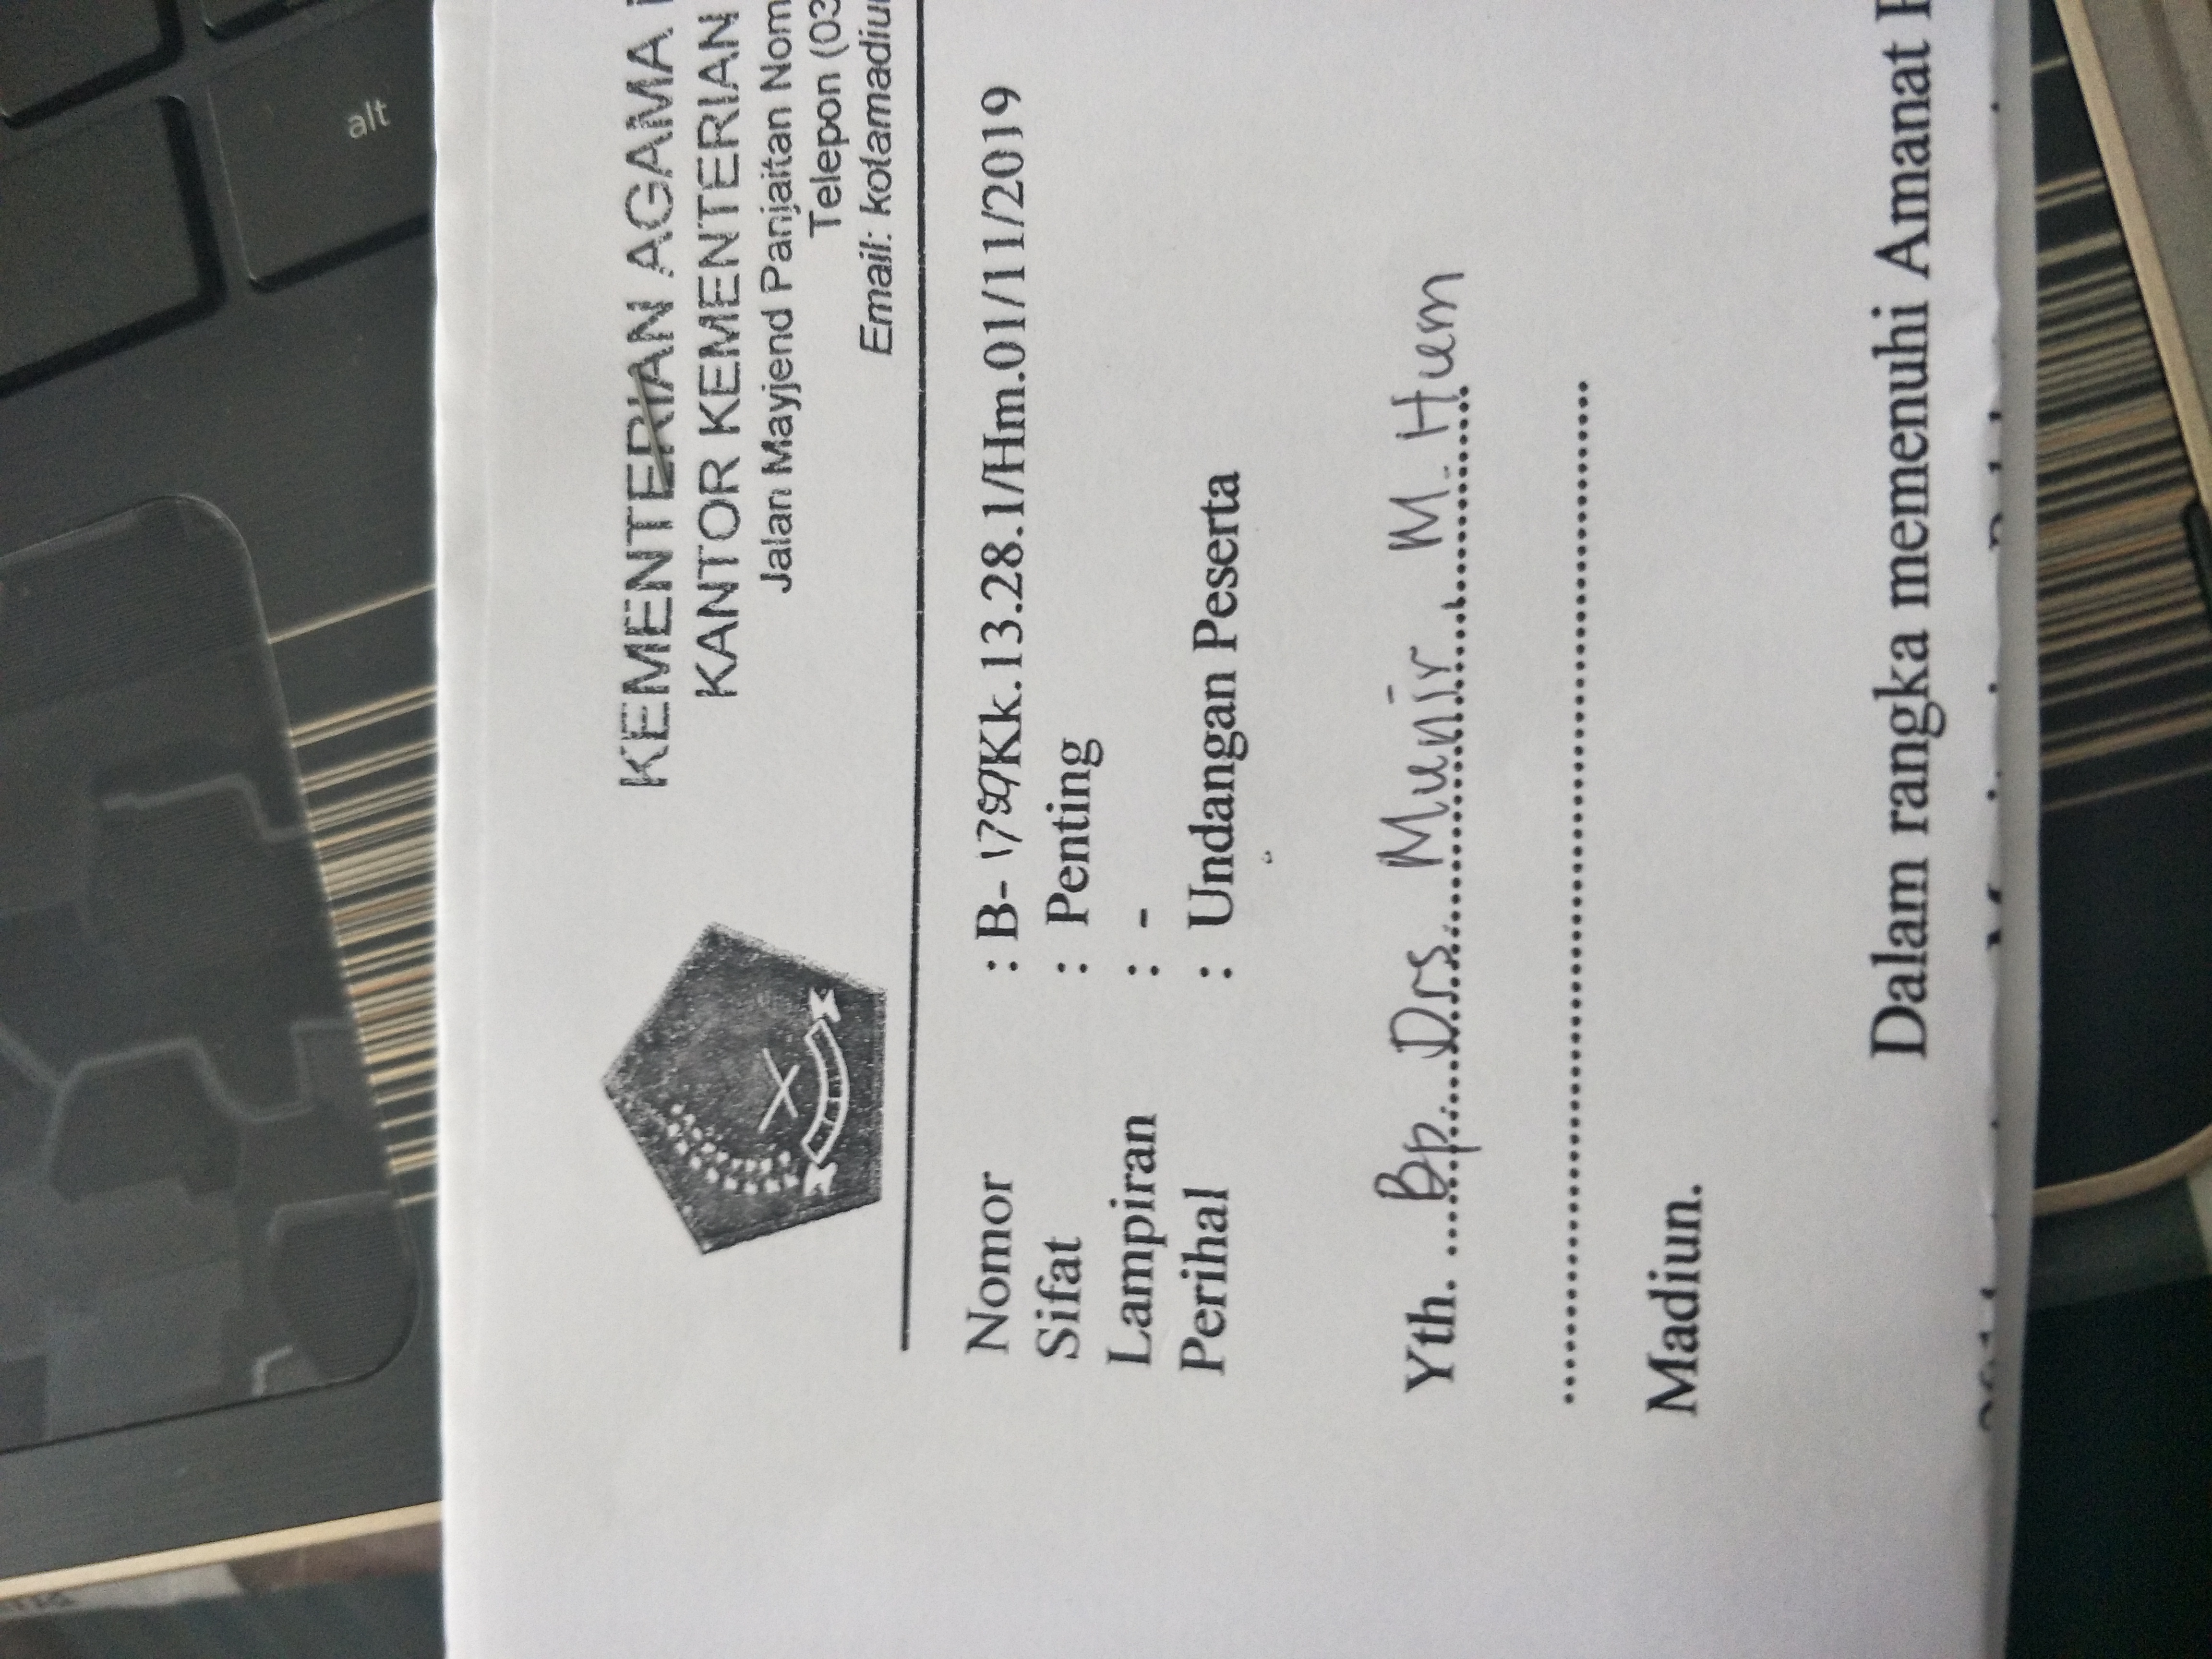 alt
KEMENTERIAN AGAMA
KANTOR KEMENTERIAN
Jalan Mayjend Panjaitan Nom
Telepon (03
Email: kotamadiu
Nomor : B- Kk.13.28.1/Hm.01/11/2019
Sifat : Penting
Lampiran : -
Perihal : Undangan Peserta
Yth. Bp. Drs. Munir, M. Hum
Madiun.
Dalam rangka memenuhi Amanat